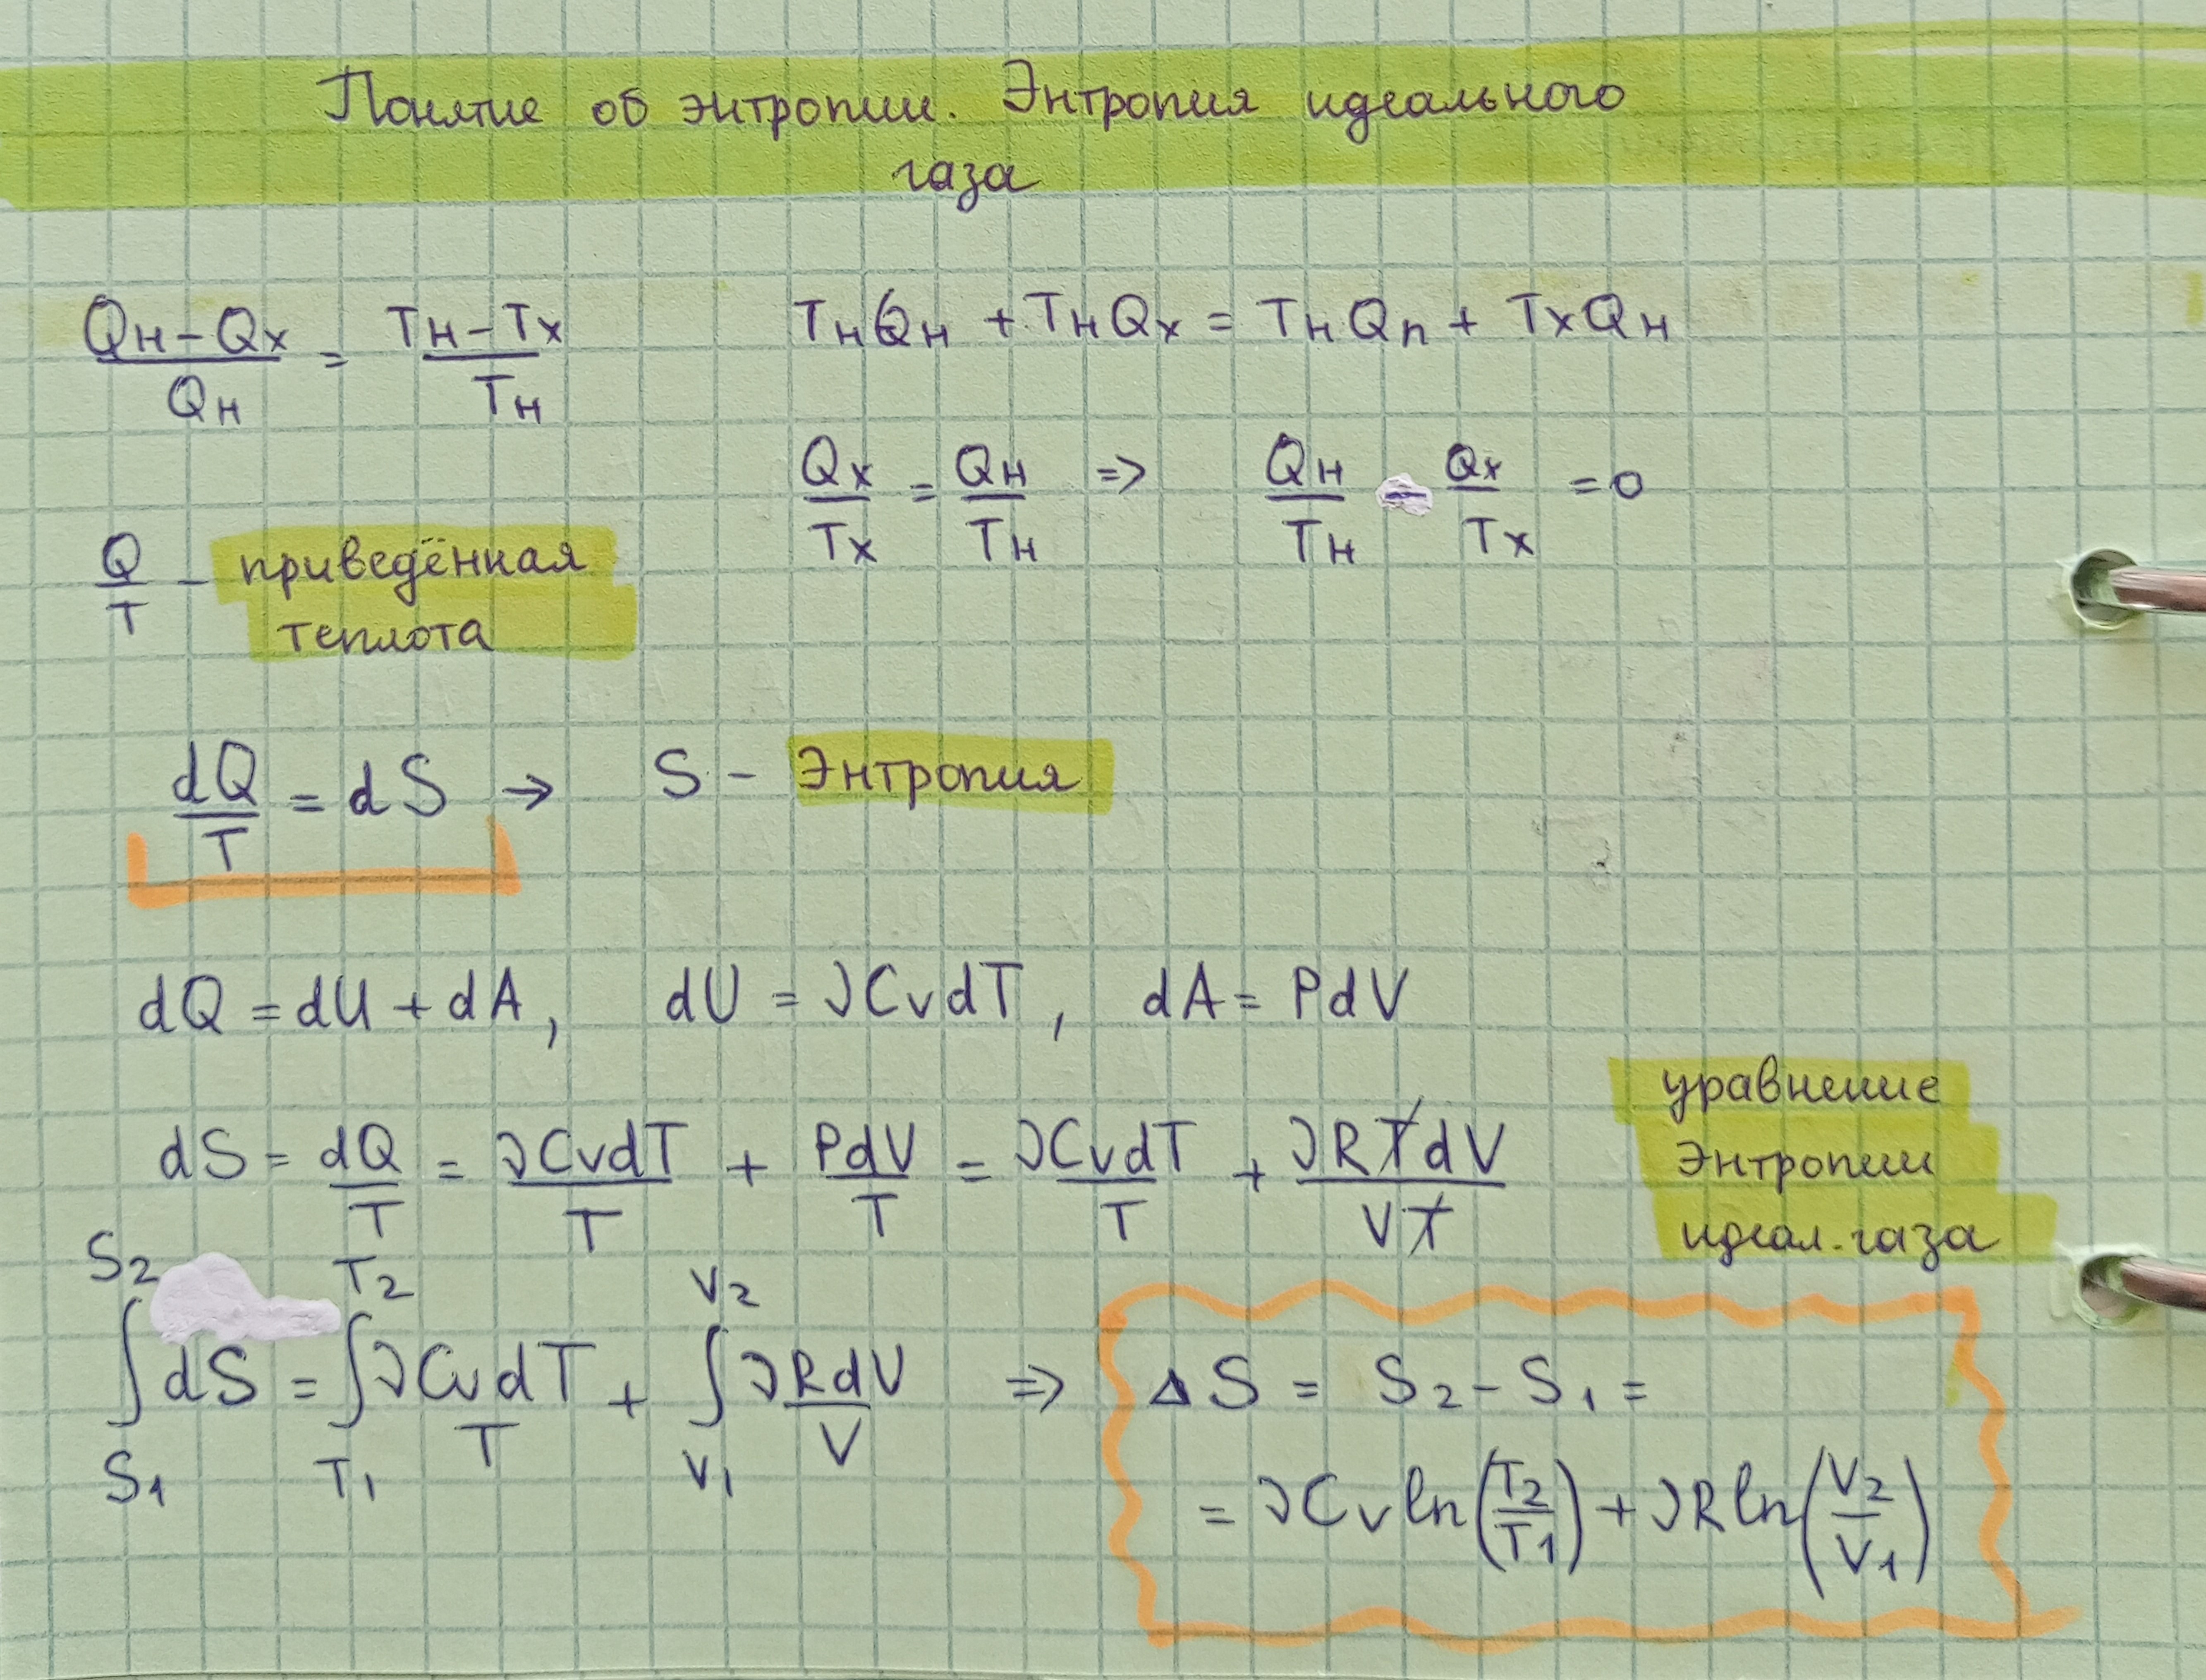 Понятие об энтропии. Энтропия идеального
газа
(Qн - Qх)/Qн = (Tн - Tх)/Tн
TнQн + TнQх = TнQп + TхQн
Qх/Tх = Qн/Tн => Qн/Tн - Qх/Tх = 0
Q/T - приведённая
теплота
dQ/T = dS → S - Энтропия
dQ = dU + dA, dU = νCvdT, dA = PdV
dS = dQ/T = νCvdT/T + PdV/T = νCvdT/T + νRTdV/VT
уравнение
Энтропии
идеал. газа
∫_{S1}^{S2} dS = ∫_{T1}^{T2} νCvdT/T + ∫_{V1}^{V2} νRdV/V => ΔS = S2 - S1 =
= νCv ln(T2/T1) + νR ln(V2/V1)